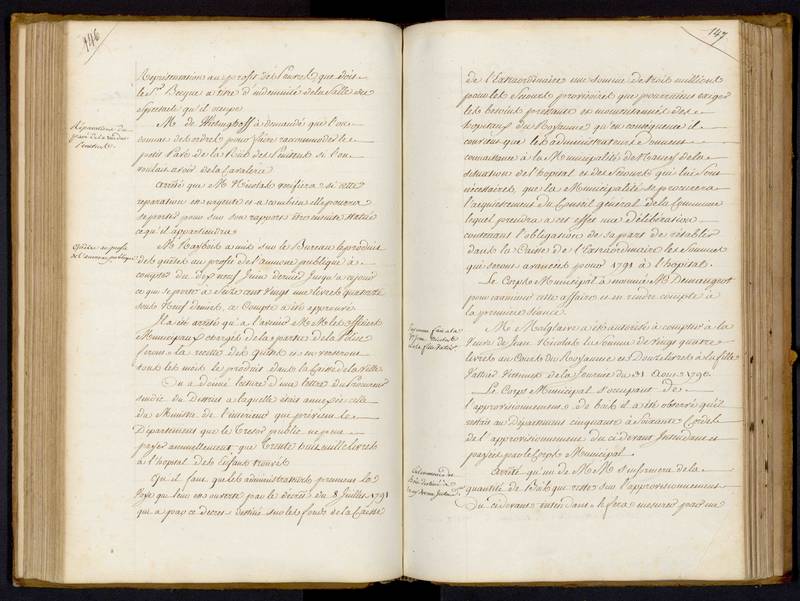 146
Représentation au profit des Pauvres que doit
le Sr. Becque à titre d'indemnité de la Salle du
Spectacle qu'il occupe
Réparations du
pavé de la rue des
Pénitents
M. de a demandé que l'on
donnat des ordres pour faire raccommoder le
petit Pavé de la Rue des Pénitens si l'on
voulait avoir de la Cavalerie
arrêté que M. Nicolas vérifiera si cette
réparation est urgente et à combien elle pourra
se porter pour sur son rapport être ensuite statué
ce qu'il appartiendra
Quêtes au profit
de l'aumône publique
M. a mis sur le Bureau le produit
des quêtes au profit de l'aumone publique à
compter du dix neuf Juin dernier jusqu'à ce jour
ce qui se porte à Seize cent vingt une livres quatorze
sous Neuf deniers, ce Compte a été approuvé
Il a été arrêté qu'à l'avenir MM. les officiers
Municipaux chargés de la partie de la Police
feront la recette des quêtes et en verseront
tous les mois le produit dans la Caisse de la Ville
On a donné lecture d'une lettre du Procureur
sindic du District à laquelle était annexée celle
du Ministre de l'intérieur qui prévient le
Département que le Trésor public ne peut
payer annuellement que Trente huit mille livres
à l'hopital des Enfans trouvés
Qu'il faut que les administrateurs prennent la
voye qui leur est ouverte par le décret du 8 Juillet 1791
qui a par ce décret destiné sur les fonds de la Caisse
147
de l'Extraordinaire une somme de trois millions
pour les Secours provisoires que pourraient exiger
les besoins pressants et momentanés des
hopitaux du Royaume qu'en conséquence il
convient que les administrateurs donnent
connaissance à la Municipalité de Nancy de la
situation de l'hopital et des Secours qui lui sont
nécessaires, que la Municipalité se procurera
l'acquiescement du Conseil général de la Commune
lequel prendra à cet effet une délibération
contenant l'obligation de sa part de rétablir
dans la Caisse de l'Extraordinaire les Sommes
qui seront avancées pour 1791 à l'hopital.
Le Corps Municipal a nommé M. Demangeot
pour examiner cette affaire et en rendre compte à
la première séance.
à la
Ve. Jean Nicolas
et la fille
M. Malglaive a été autorisé à compter à la
Veuve de Jean Nicolas la Somme de vingt quatre
livres au Cours du Royaume et Douze livres à la fille
de la Journée du 31 Aout 1790
Le Corps Municipal s'occupant de
l'approvisionnement de bois il a été observé qu'il
restait au département cinquante à Soixante Cordes
de l'approvisionnement du cidevant Intendant et
payées par le Corps Municipal.
arrêté qu'un de MM. s'informera de la
quantité de Bois qui reste sur l'approvisionnement
Du cidevant intendant le fera mesurer par un